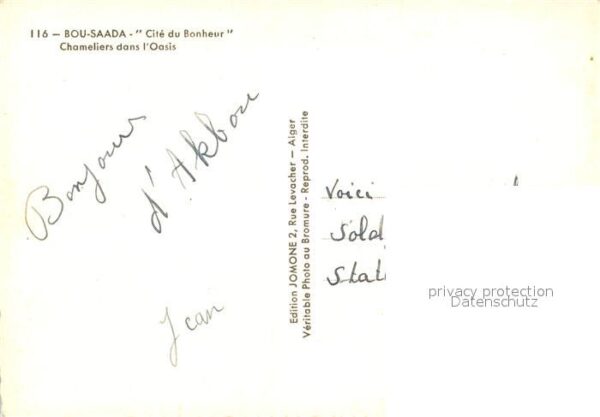 116 — BOU-SAADA - " Cité du Bonheur "
Chameliers dans l'Oasis
Bonjour
d'Akbou
Jean
Edition JOMONE 2, Rue Levacher — Alger
Véritable Photo au Bromure - Reprod. Interdite
Voici
Sold
Stat
privacy protection
Datenschutz